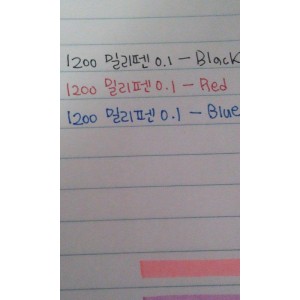 1200 밀리펜 0.1 - Black
1200 밀리펜 0.1 - Red
1200 밀리펜 0.1 - Blue